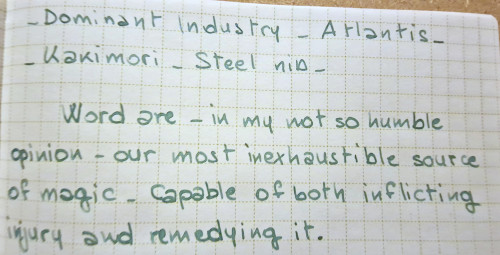 - Dominant Industry - Atlantis -
- Kakimori - Steel nib -
Word are - in my not so humble
opinion - our most inexhaustible source
of magic - Capable of both inflicting
injury and remedying it.